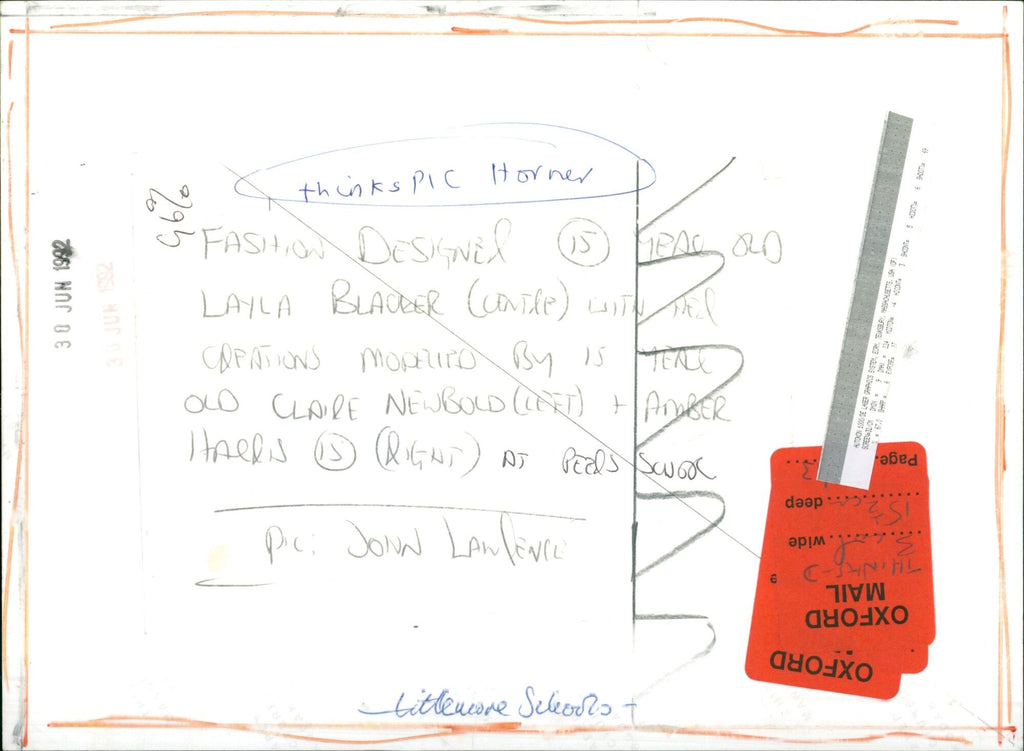 thinks PIC Horner
96%
FASHION DESIGNER 15 YEAR OLD
LAYLA BLACKER (CENTRE) WITH HER
CREATIONS MODELLED BY 15 YEAR
OLD CLAIRE NEWBOLD (LEFT) + AMBER
HARRIS 15 (RIGHT) AT PEERS SCHOOL
PIC: JOHN LAWRENCE
30 JUN 1992
30 JUN 1992
Littlemore Schools
OXFORD
MAIL
THINKS-D
wide 3 col
deep 15½cm
Page 3
OXFORD